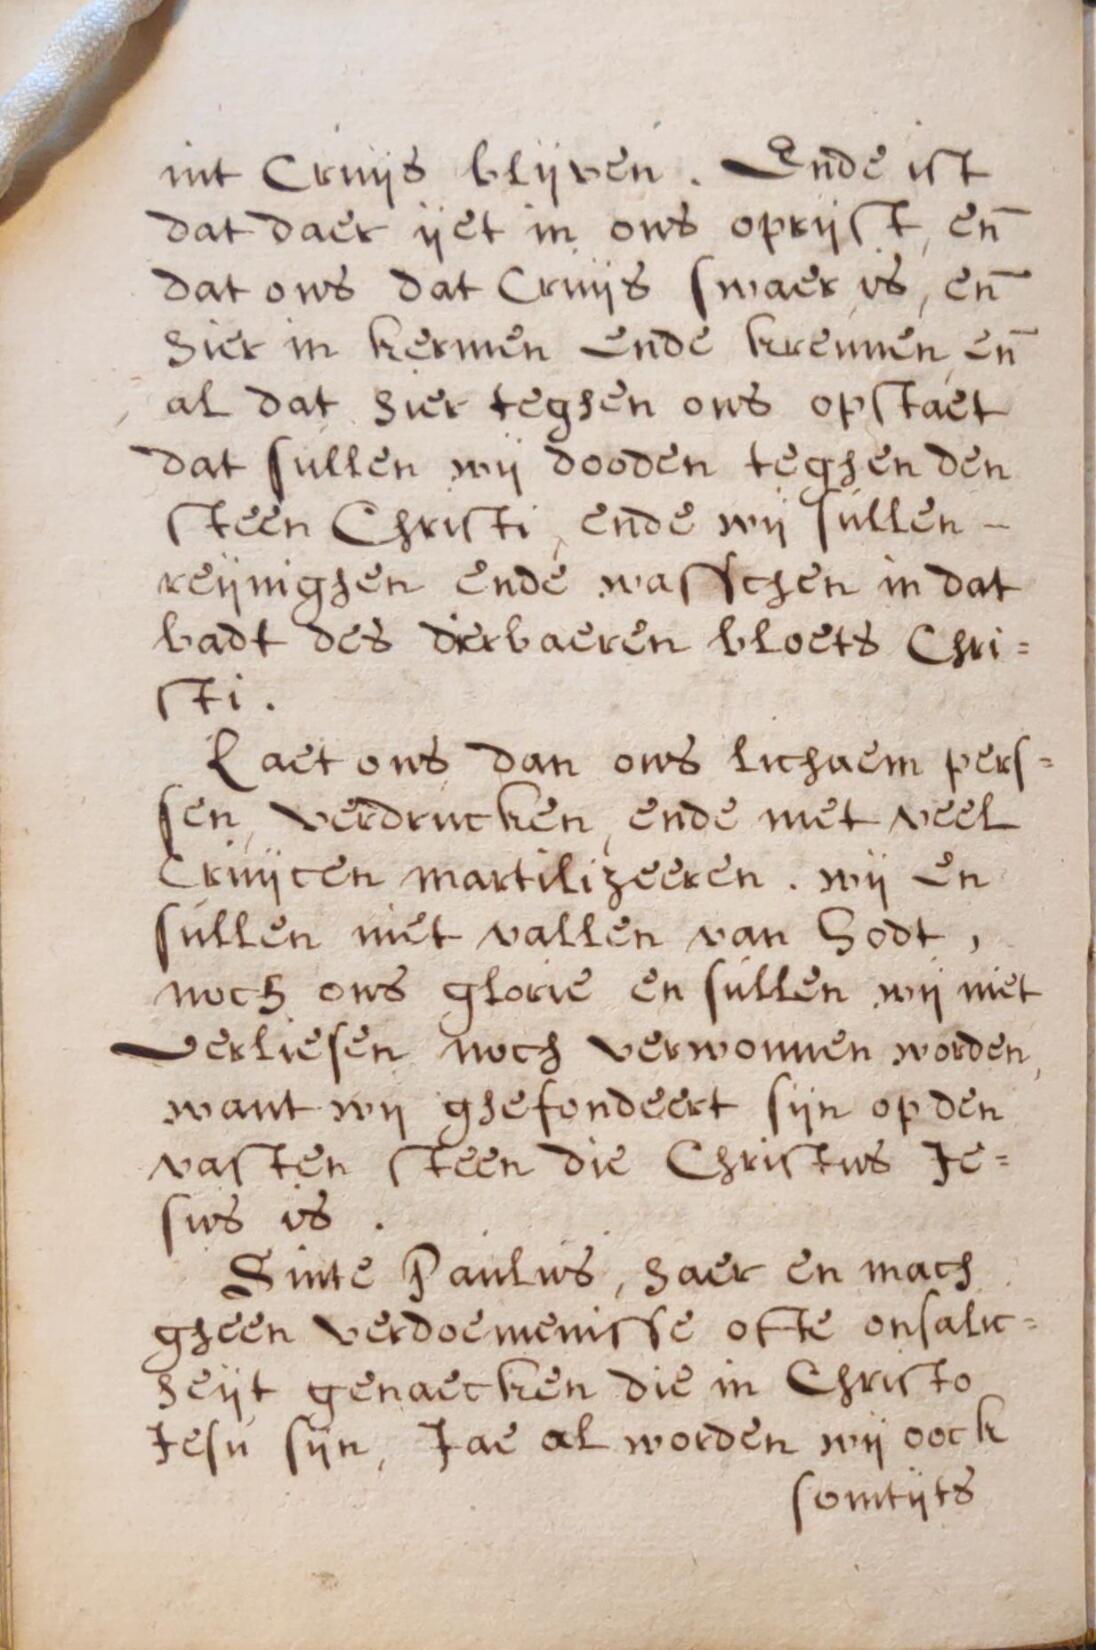 int Cruijs blijven. Ende ist
dat daer ijet in ons oprijst, en̄
dat ons dat Cruijs swaer is, en̄
hier in kermen ende kreunen, en̄
al dat hier teghen ons opstaet
dat sullen wij dooden teghen den
steen Christi, ende wij sullen –
reijnighen ende wasschen in dat
badt des dierbaeren bloets Chri=
sti.
Laet ons dan ons lichaem pers=
sen, verdrucken, ende met veel
Cruijcen martilizeeren. wij en
sullen niet vallen van Godt,
noch ons glorie en sullen wij niet
verliesen noch verwonnen worden,
want wij ghefondeert sijn op den
vasten steen die Christus Je=
sus is.
Sinte Paulus, haer en mach
gheen verdoemenisse ofte onsalic=
heijt genaecken die in Christo
Jesu sijn, Jae al worden wij oock
somtijts